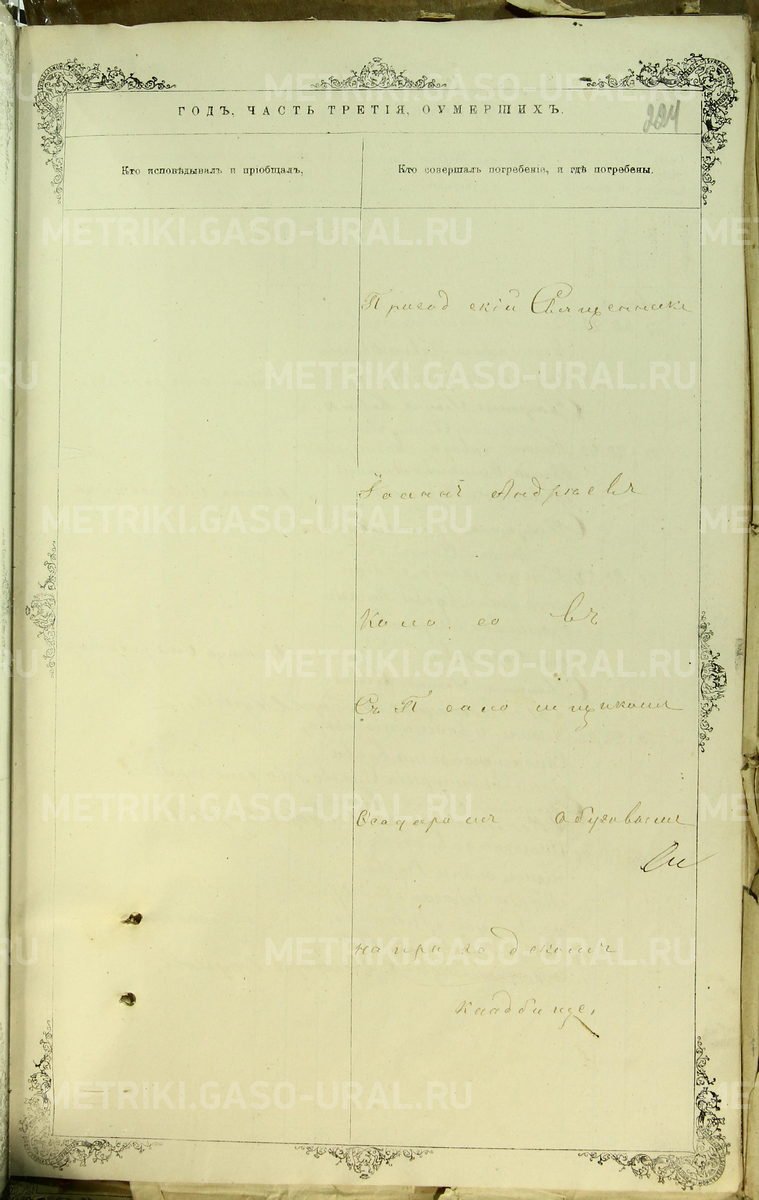 ГОДЪ, ЧАСТЬ ТРЕТІЯ, ОУМЕРШИХЪ.
224
Кто исповѣдывалъ и пріобщалъ,
Кто совершалъ погребеніе, и гдѣ погребены.
Приход скій Священникъ
Іоаннъ Андреевъ
въ
Съ П сало мщикомъ
Обуховымъ
на прихо дскомъ
кладбище,
METRIKI.GASO-URAL.RU